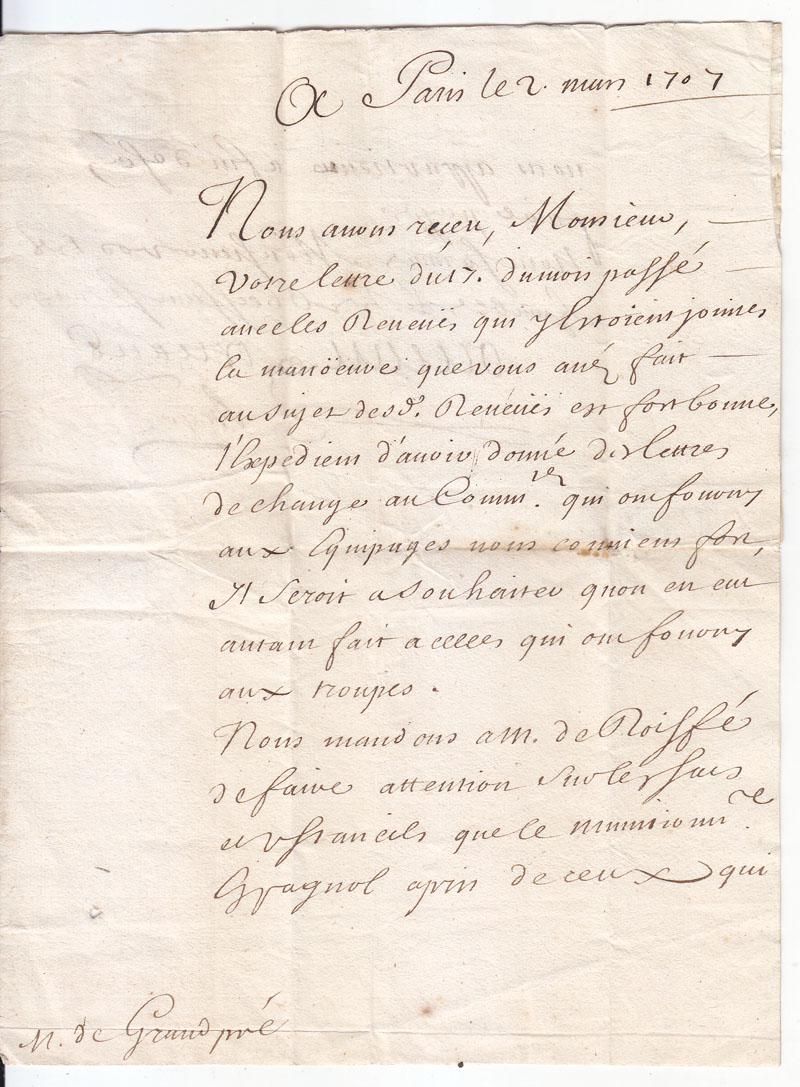 A Paris le 2. mars 1707
Nous auons receu, Monsieur,
Votre lettre du 17. du mois passé
auec les Reueües qui y Estoient jointes
la manoeuure que vous aués fait
au sujet desd. Reueües est fort bonne,
l'Expedient d'auoir donné des lettres
de change au Comm.re qui ont fourny
aux Equipages nous conuient fort,
Il Seroit a Souhaiter quon en eut
autant fait a celles qui ont fourny
aux troupes.
Nous mandons a M. de Roissé
de faire attention Sur les sacs
et Vstancils que le munitionn.re
Espagnol a pris de ceux qui
M. de Grandpré